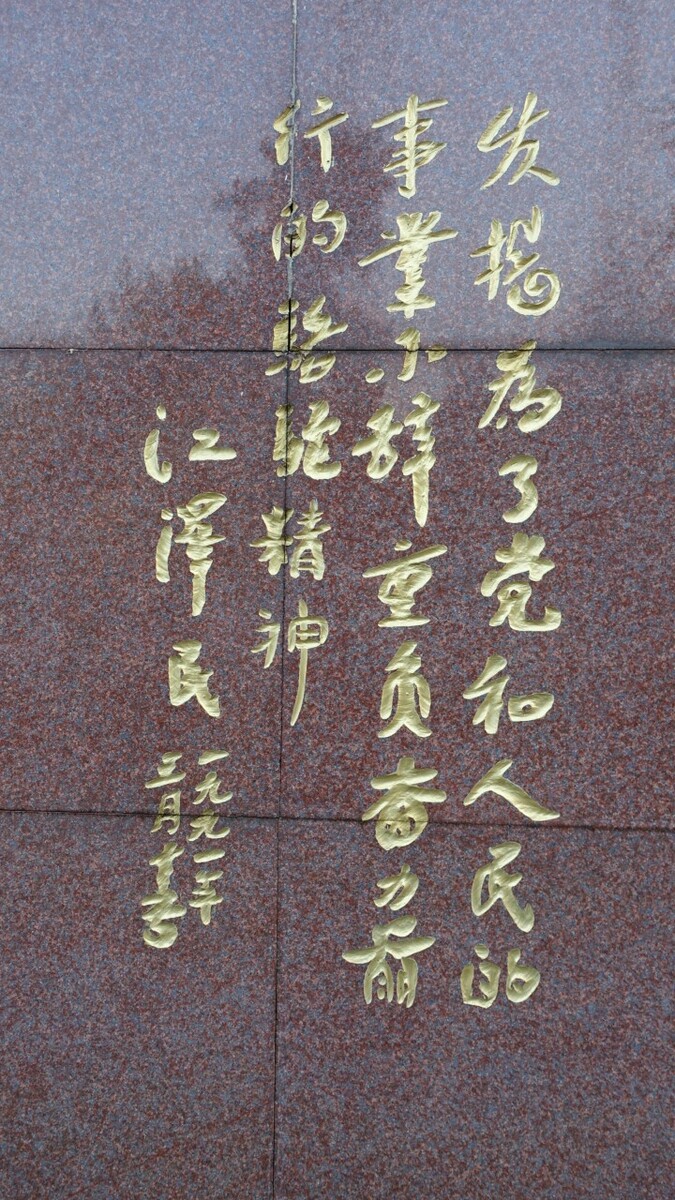 发揚為了党和人民的
事業不辞重负奋力前
行的駱駝精神
江澤民
一九九一年
三月